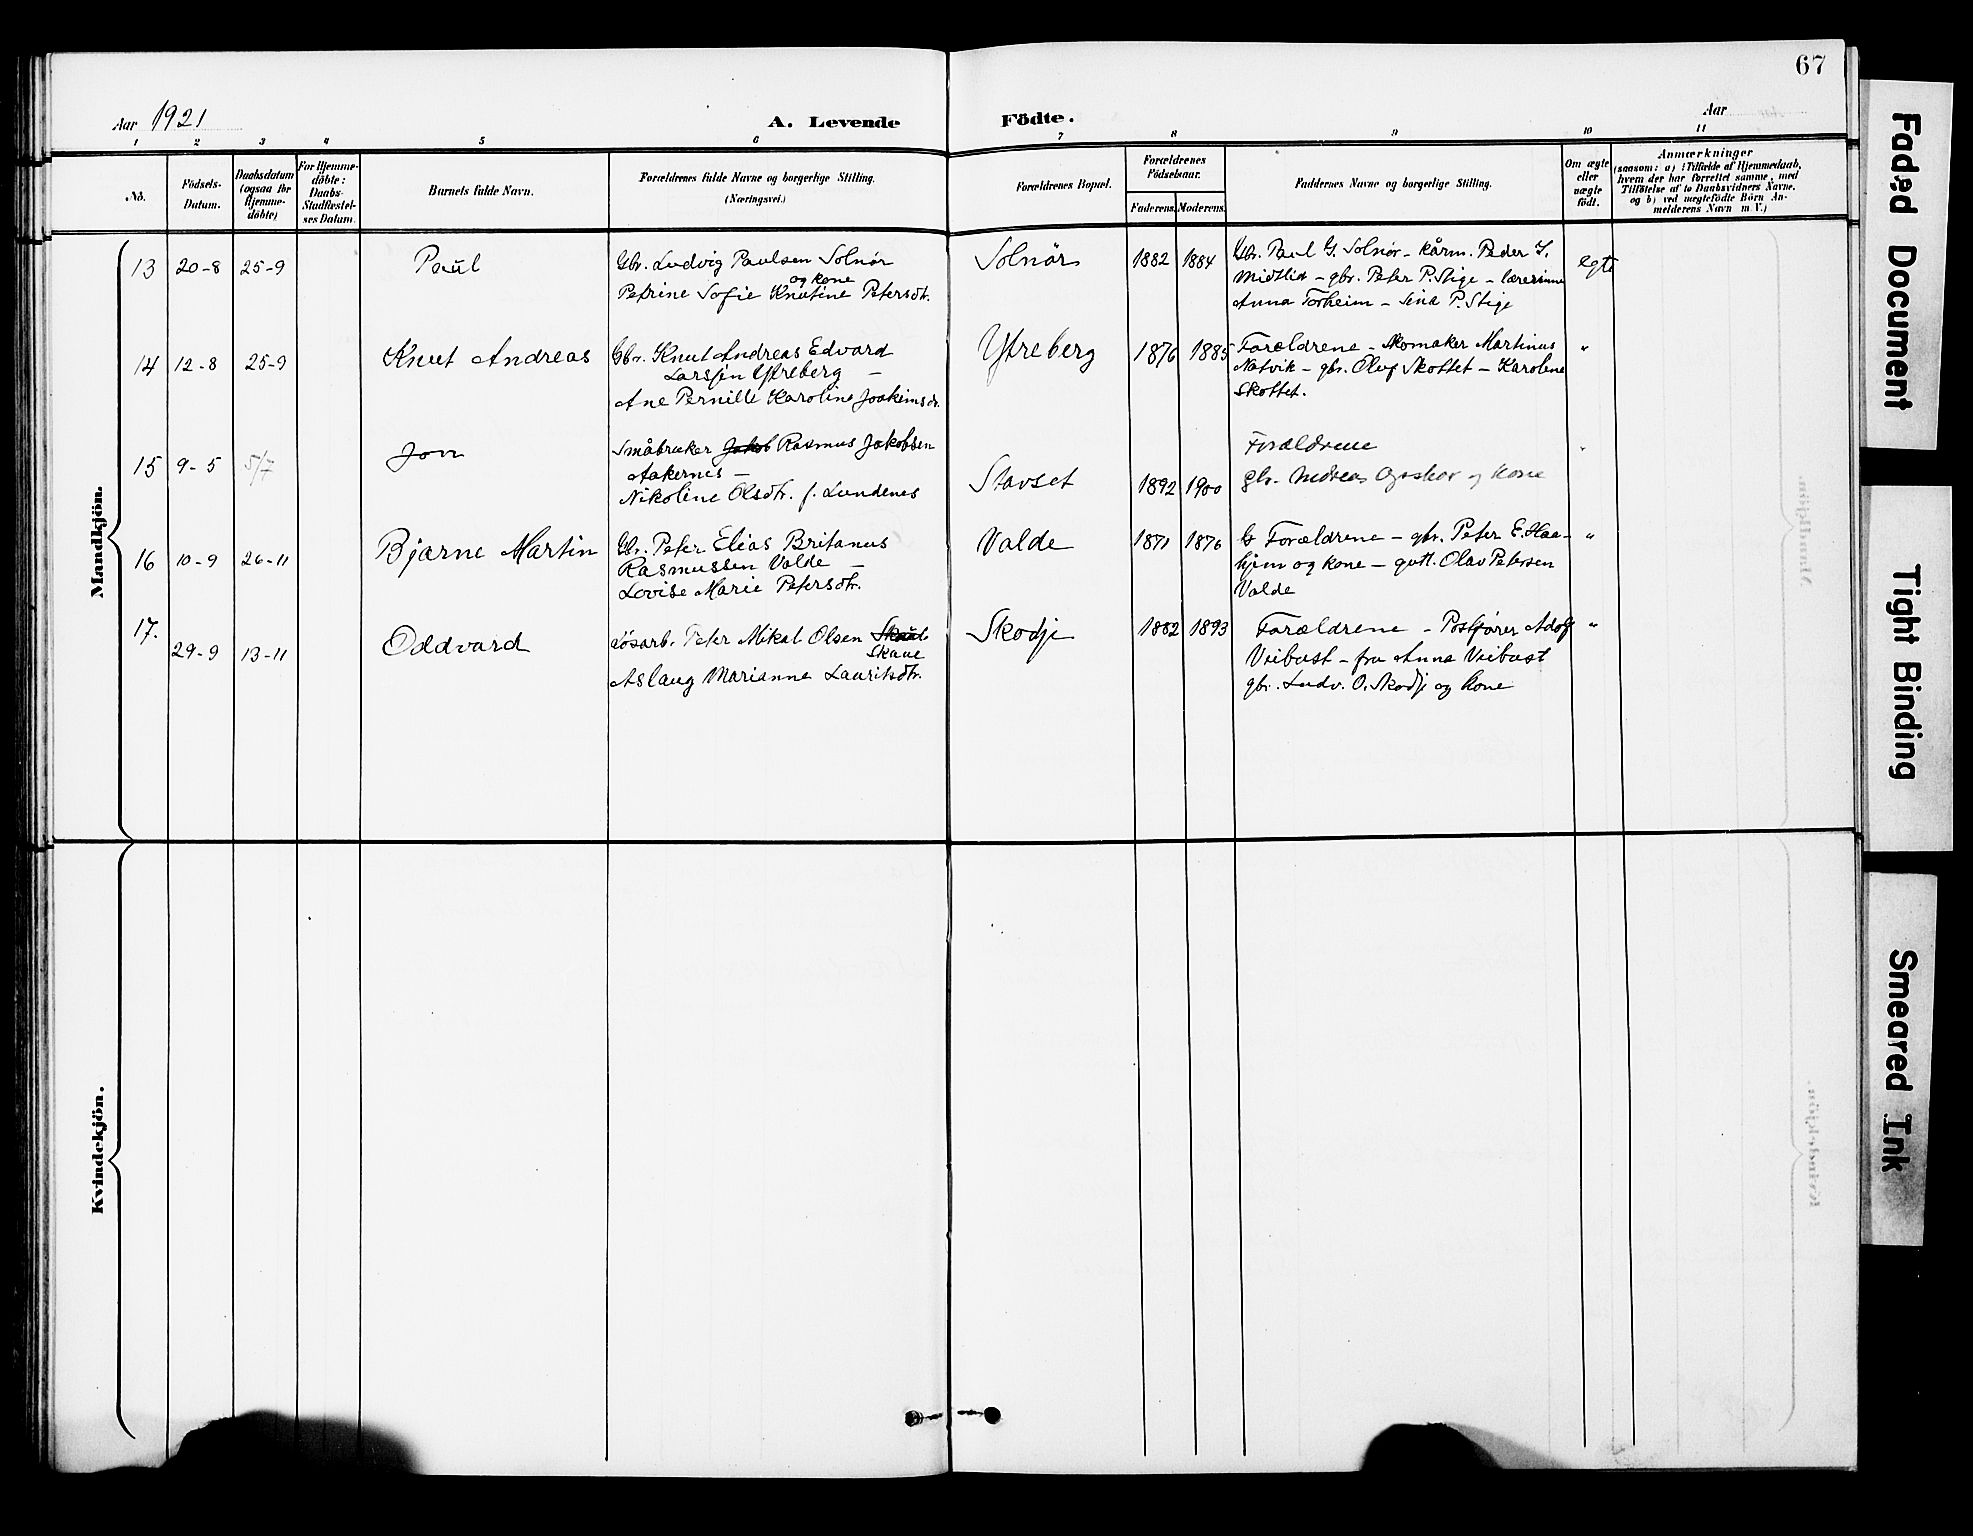 67
Aar 1921
A. Levende Födte.
Aar
1 2 3 4 5 6 7 8 9 10 11
No.
Födsels-
Datum.
Daabsdatum
(ogsaa for
Hjemme-
döbte)
For Hjemme-
döbte:
Daabs-
Stadfæstel-
ses Datum.
Barnets fulde Navn.
Forældrenes fulde Navne og borgerlige Stilling.
(Næringsvei.)
Forældrenes Bopæl.
Forældrenes
Födselsaar.
Faderens. Moderens.
Faddernes Navne og borgerlige Stilling.
Om ægte
eller
uægte
födt.
Anmærkninger
(saasom: a) i Tilfælde af Hjemmedaab,
hvem der har forrettet samme, med
Tilföielse af to Daabsvidners Navne.
og b) ved uægtefödte Börn An-
melderens Navn m V.)
Mandkjön.
13 20-8 25-9 Paul
Gbr. Ludvig Paulsen Solnør
og kone
Petrine Sofie Knutine Petersdtr.
Solnör 1882 1884
Gbr. Paul G. Solnør - kårm. Peder I.
Midtlid - gbr. Peter P. Stige - lærerinne
Anna Torheim - Sina P. Stige
egte
14 12-8 25-9 Knut Andreas
Gbr. Knut Andreas Edvard
Larssen Ytreberg -
Ane Pernille Karoline Joakimsdr.
Ytreberg 1876 1885
Forældrene - Skomaker Martinus
Natvik - gbr. Oluf Skottet - Karoline
Skottet.
"
15 9-5 5/7 Jon
Småbruker Jakob Rasmus Jakobsen
Aakernes -
Nikoline Olsdtr. f. Lundenes
Stavset 1892 1900
Forældrene
gbr. Andreas og kone
"
16 10-9 26-11 Bjarne Martin
Gbr. Peter Elias Britanus
Rasmussen Valde -
Lovise Marie Petersdtr.
Valde 1871 1876
G Forældrene - gbr. Peter E. Haa-
hjem og kone - gutt. Olav Petersen
Valde
"
17. 29-9 13-11 Oddvard
Løsarb. Peter Mikal Olsen Skaul
Skaue
Aslaug Marianne Lauritsdtr.
Skodje 1882 1893
Forældrene - Postfører Adolf
Vibust - fru Anna Vibust
gbr. Ludv. O. Skodje og kone
"
Kvindekjön.
Faded Document
Tight Binding
Smeared Ink